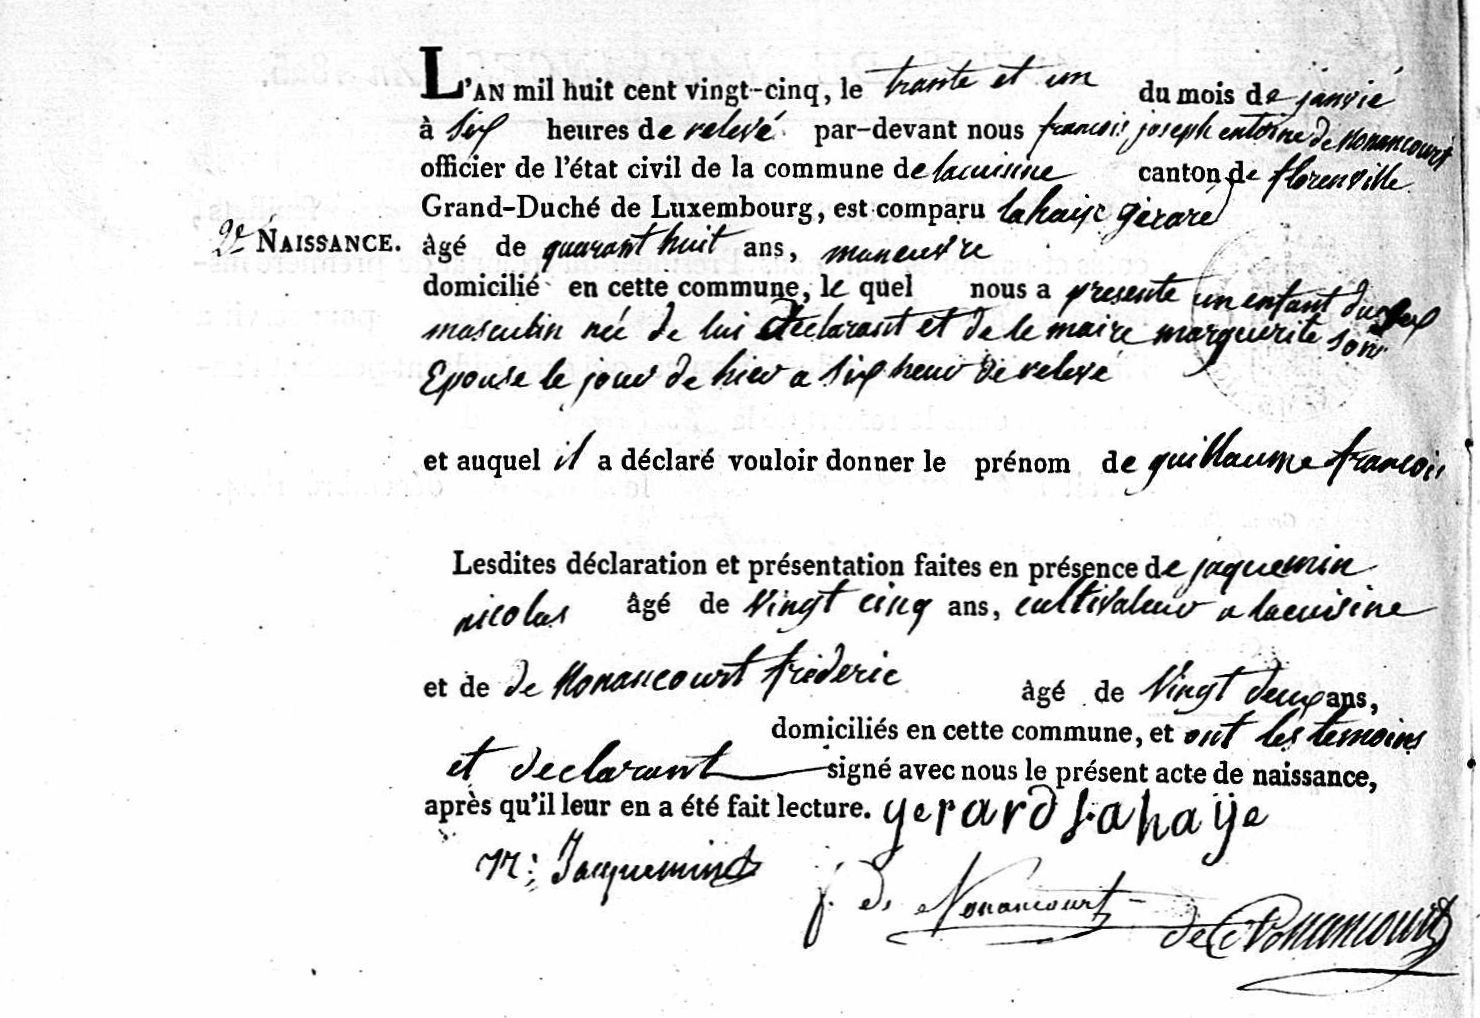 L'AN mil huit cent vingt-cinq, le trante et un du mois de janvié
à six heures de relevé par-devant nous francois joseph entoine de Nonancourt
officier de l'état civil de la commune de lacuisine canton de florenville
Grand-Duché de Luxembourg, est comparu lahaije gerard
2e NAISSANCE. âgé de quarant huit ans, maneuvre
domicilié en cette commune, le quel nous a presente un enfant du sex
masculin née de lui declarant et de le maire marguerite son
Epouse le jour de hier a six heur de relevé
et auquel il a déclaré vouloir donner le prénom de guillaume francois
Lesdites déclaration et présentation faites en présence de jaquemin
nicolas âgé de vingt cinq ans, cultivateur a lacuisine
et de de Nonancourt frederic âgé de vingt deux ans,
domiciliés en cette commune, et ont les temoins
et declarant signé avec nous le présent acte de naissance,
après qu'il leur en a été fait lecture. gerard Lahaÿe
N: Jacquemin
f. de Nonancourt
de Nonancourt